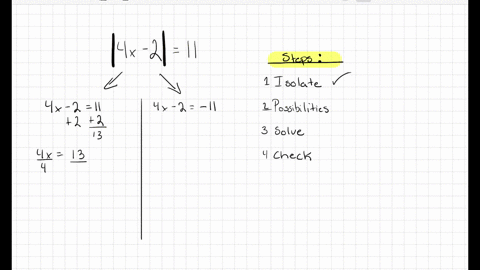 |4x-2| = 11
4x-2 = 11
+2 +2
13
4x = 13
4
4x-2 = -11
Steps:
1 Isolate ✓
2 Possibilities
3 Solve
4 Check